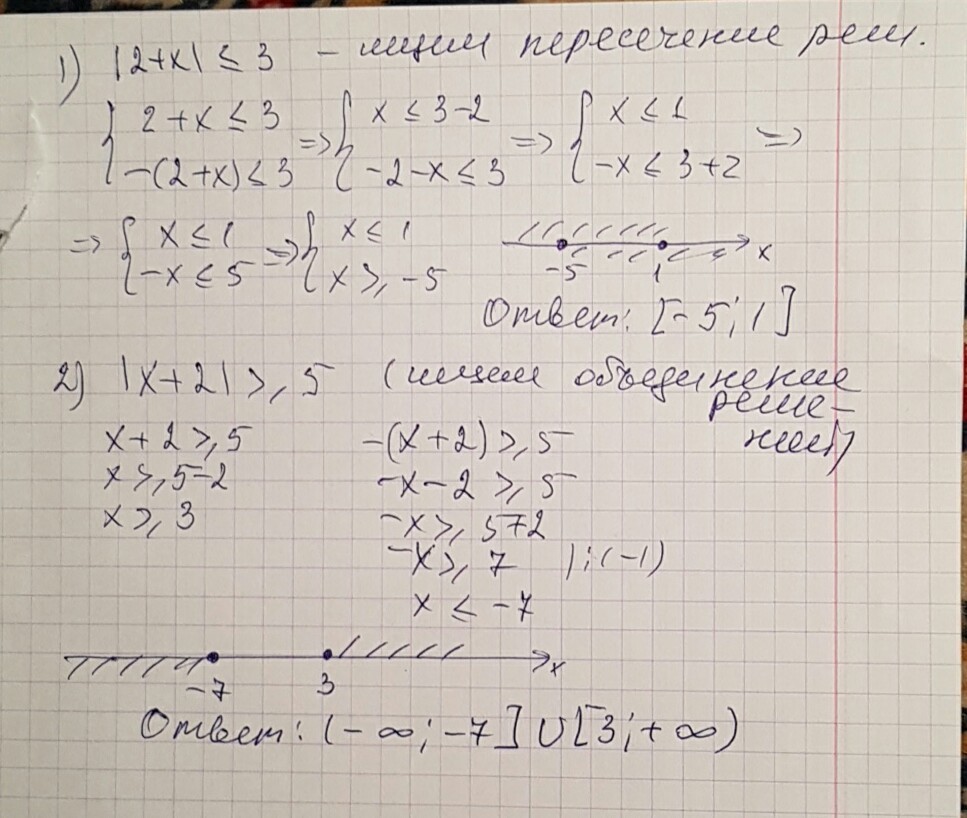 1) |2+x| ≤ 3 – ищем пересечение реш.
{ 2+x ≤ 3 => { x ≤ 3-2 => { x ≤ 1 =>
-(2+x) ≤ 3 -2-x ≤ 3 -x ≤ 3+2
=> { x ≤ 1 => { x ≤ 1
-x ≤ 5 x ≥ -5
-5 1 x
Ответ: [-5; 1]
2) |x+2| ≥ 5 (ищем объединение
реше-
ний)
x+2 ≥ 5 -(x+2) ≥ 5
x ≥ 5-2 -x-2 ≥ 5
x ≥ 3 -x ≥ 5+2
-x ≥ 7 |:(-1)
x ≤ -7
-7 3 x
Ответ: (-∞; -7] ∪ [3; +∞)